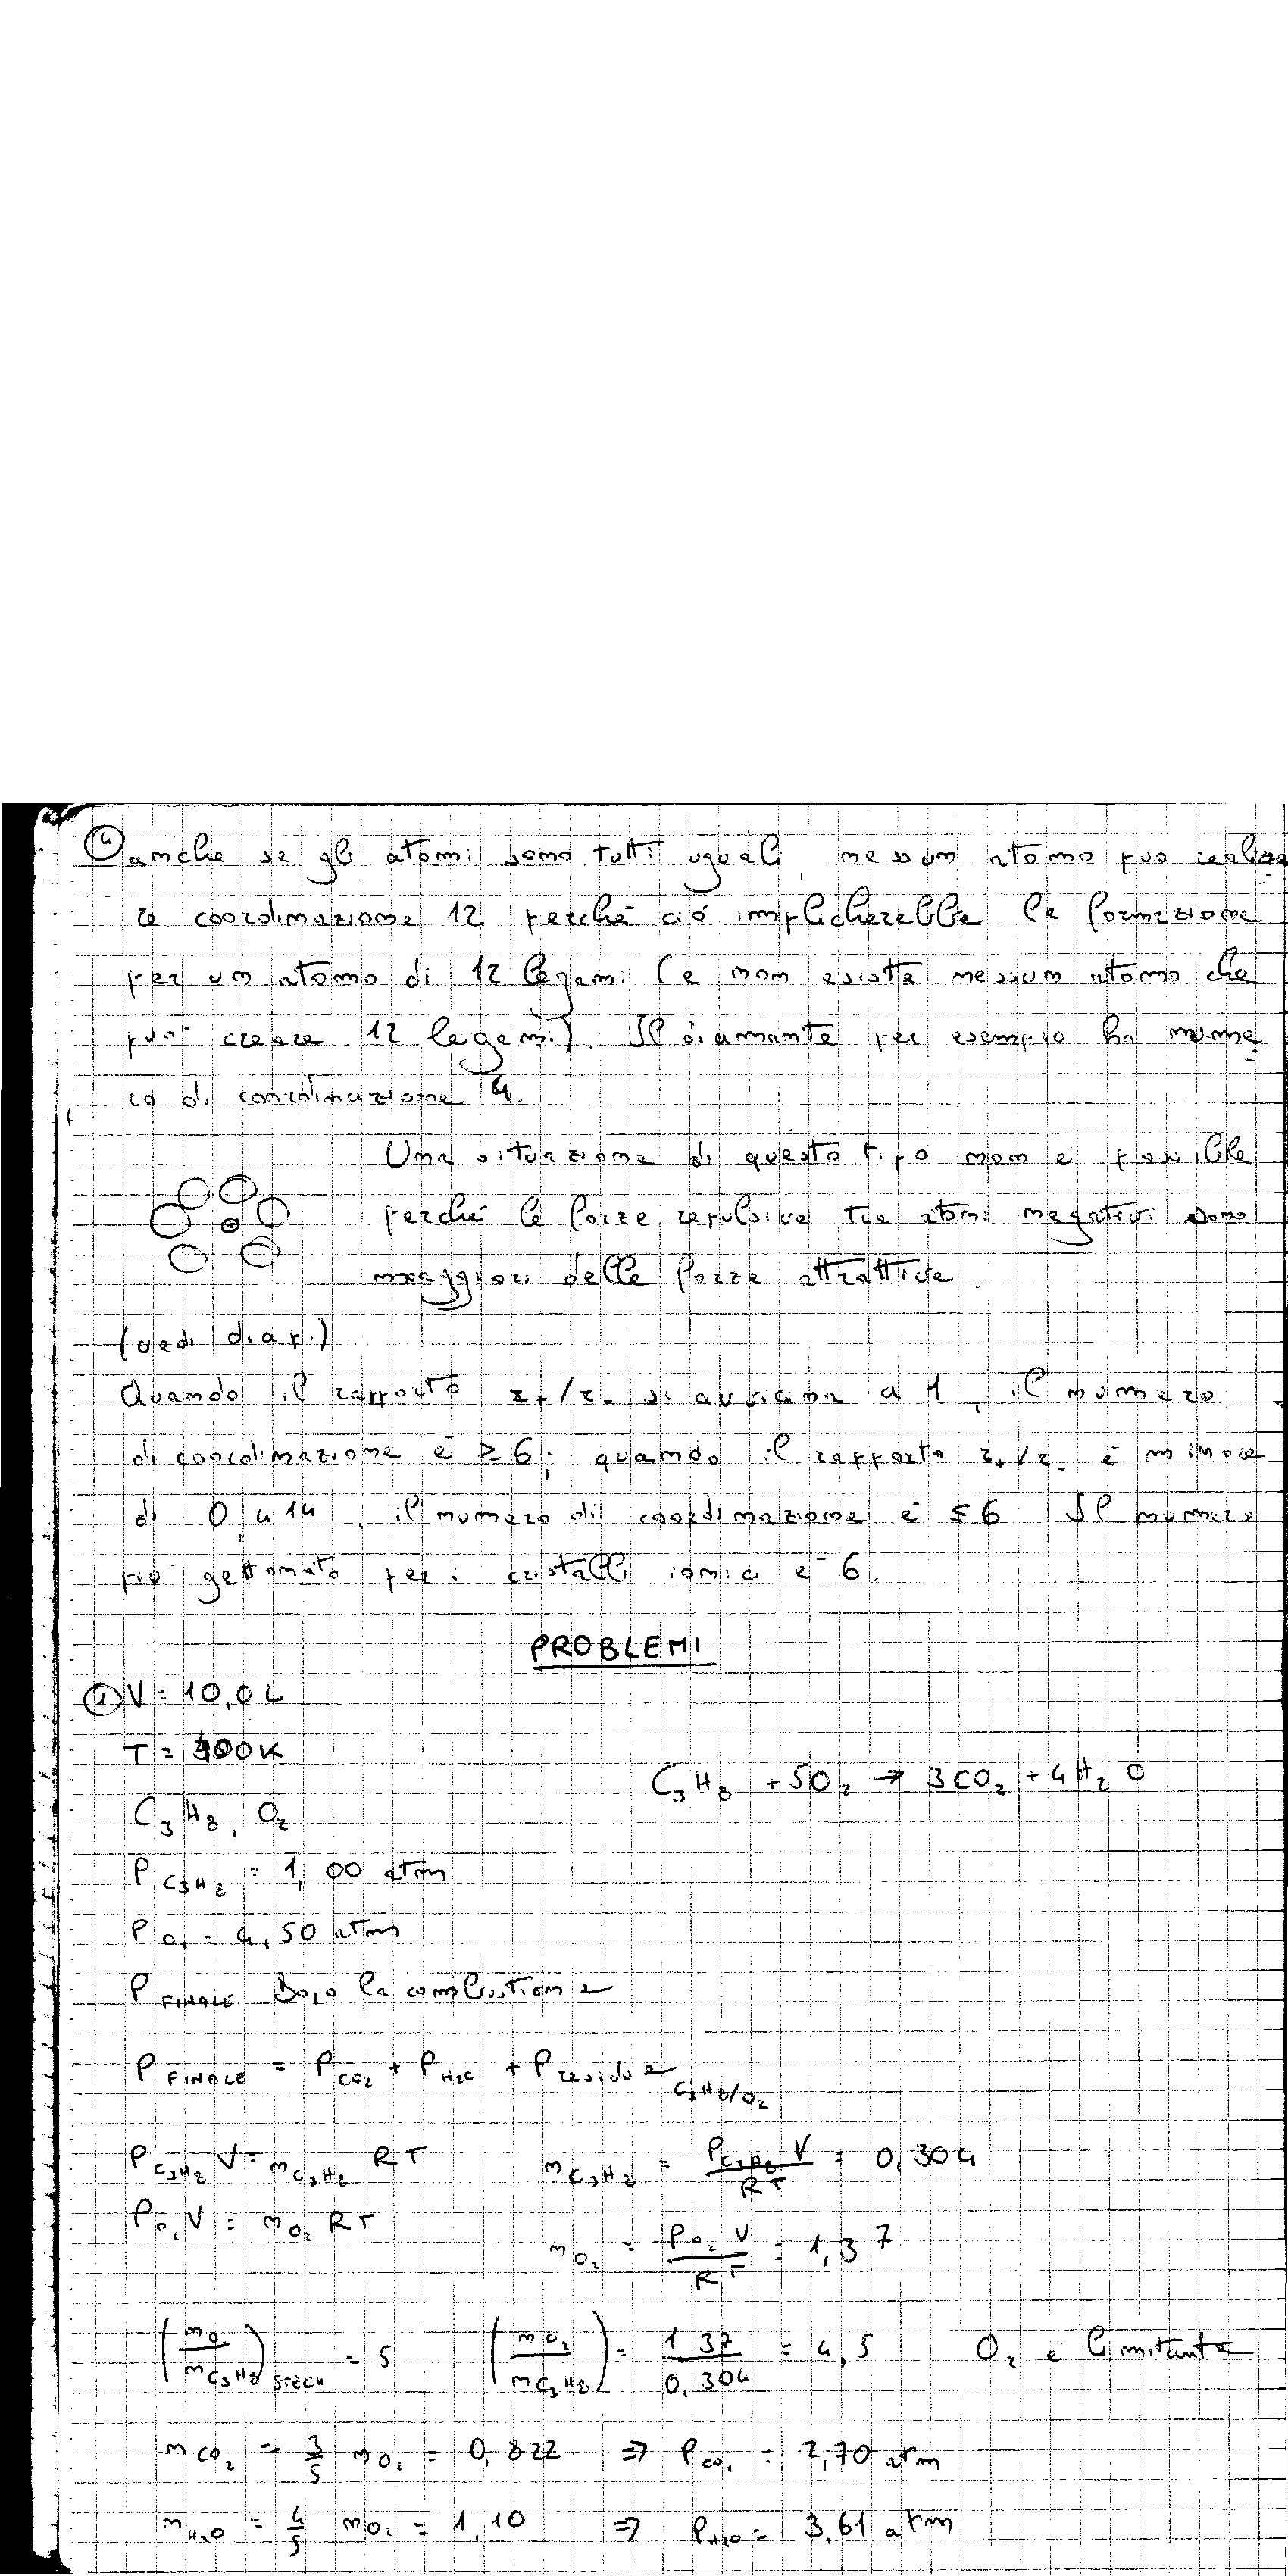 ④ anche se gli atomi sono tutti uguali, nessun atomo può realizza
re coordinazione 12 perché ciò implicherebbe la formazione
per un atomo di 12 legami (e non esiste nessun atomo che
può creare 12 legami). Il diamante per esempio ha nume
ro di coordinazione 4.
Una situazione di questo tipo non è possibile
perché le forze repulsive tra atomi negativi sono
maggiori delle forze attrattive
(vedi diap.)
Quando il rapporto r+/r- si avvicina a 1, il numero
di coordinazione è ≥ 6; quando il rapporto r+/r- è minore
di 0,414, il numero di coordinazione è ≤ 6 Il numero
più gettonato per i cristalli ionici è 6.
PROBLEMI
① V = 10,0 L
T = 400K
C3H8 + 5O2 → 3CO2 + 4H2O
C3H8, O2
P C3H2 = 1,00 atm
P O2 = 4,50 atm
P FINALE Dopo la combustione
P FINALE = P CO2 + P H2O + P residue C3H8/O2
P C3H2 V = n C3H2 RT n C3H2 = P C3H8 V / RT = 0,304
P O2 V = n O2 RT
n O2 = P O2 V / RT = 1,37
(n O2 / n C3H8) STECH = 5 (n O2 / n C3H8) = 1,37 / 0,304 = 4,5 O2 è limitante
n CO2 = 3/5 n O2 = 0,822 ⇒ P CO2 = 2,70 atm
n H2O = 4/5 n O2 = 1,10 ⇒ P H2O = 3,61 atm